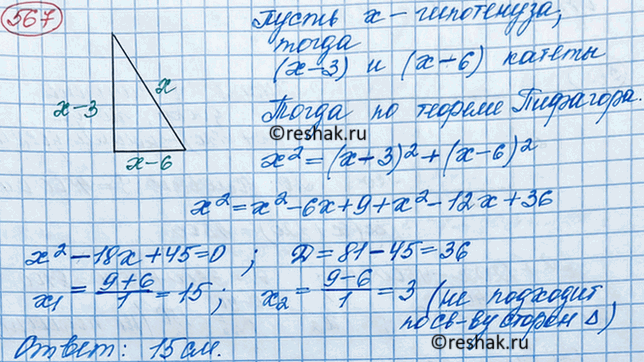 567
Пусть x - гипотенуза,
тогда
(x-3) и (x-6) катеты
x-3
x
x-6
Тогда по теореме Пифагора.
©reshak.ru
x² = (x-3)² + (x-6)²
x² = x² - 6x + 9 + x² - 12x + 36
x² - 18x + 45 = 0 ; D = 81 - 45 = 36
x₁ = (9+6)/1 = 15; x₂ = (9-6)/1 = 3 (не подходит
по св-ву сторон Δ)
Ответ: 15 см.
©reshak.ru